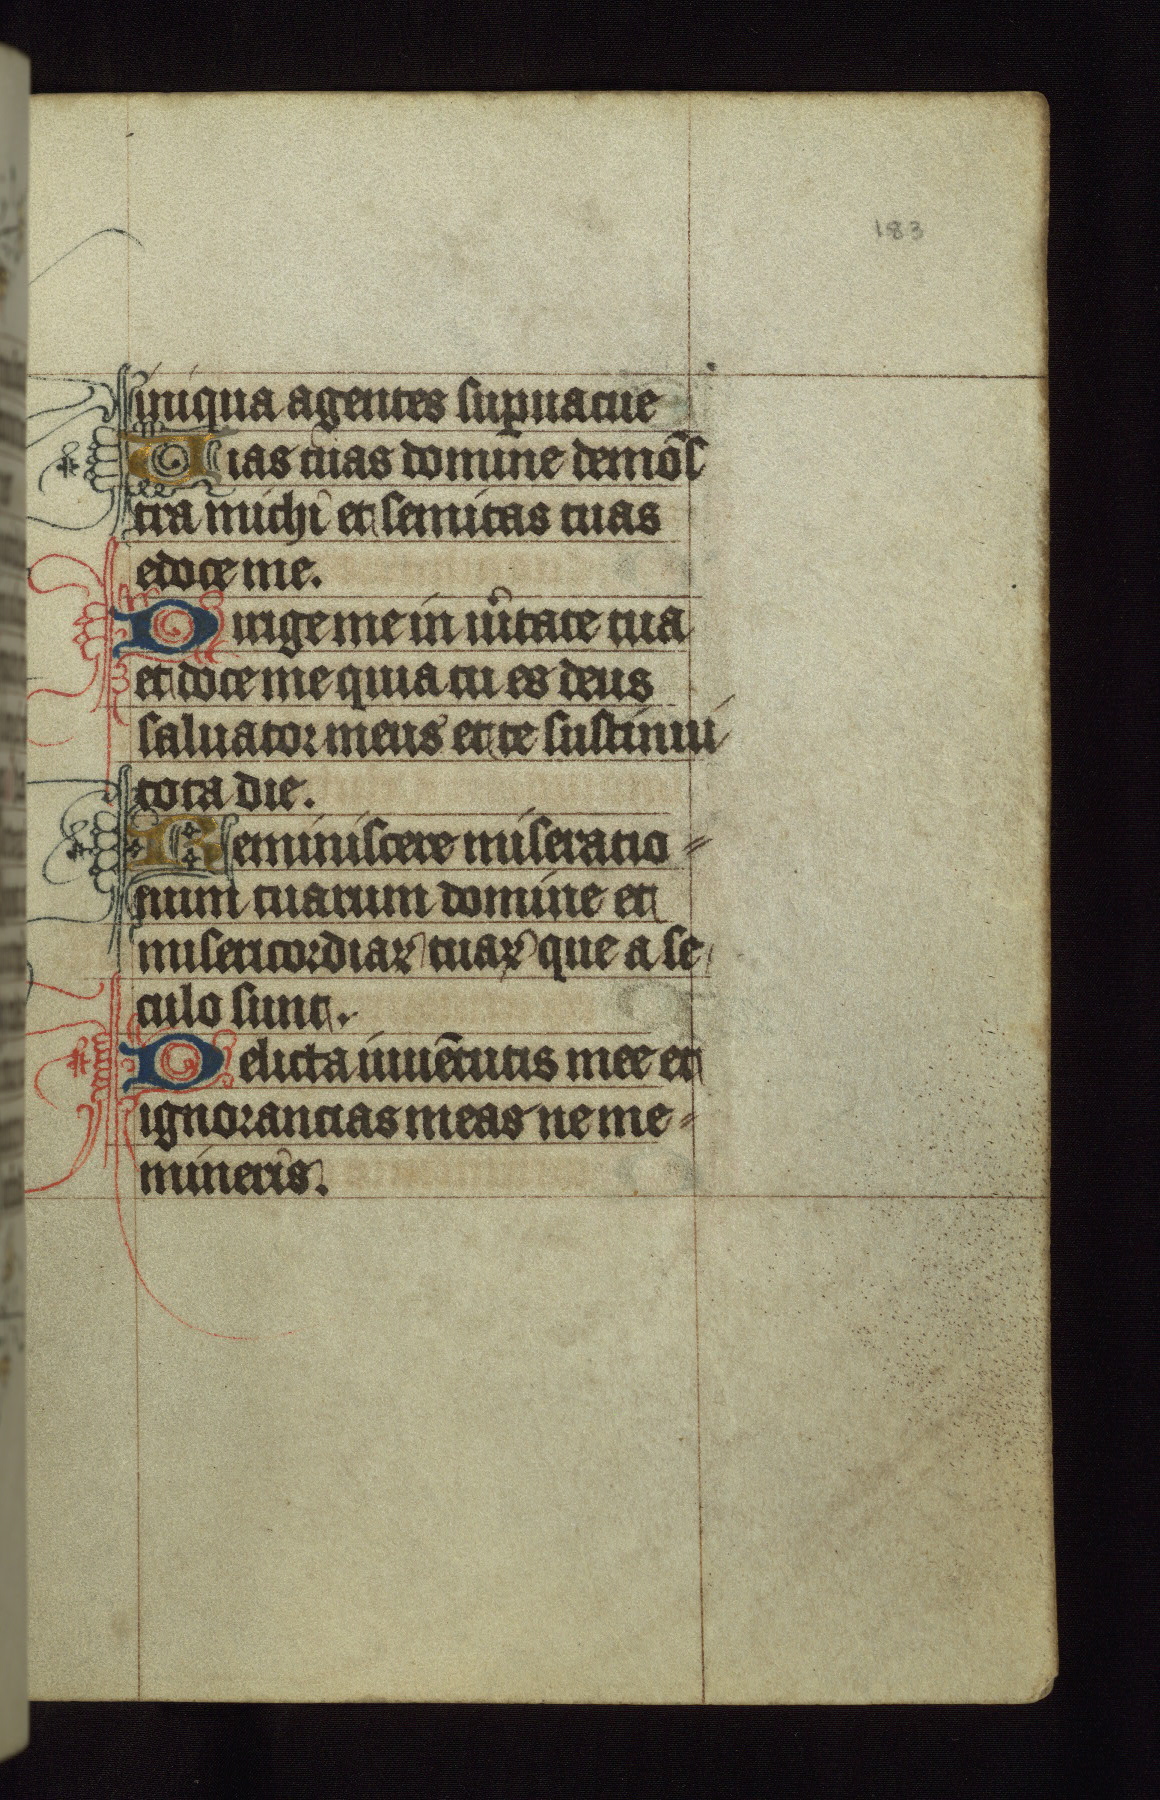 183
iniqua agentes suꝑuacue
Uias tuas domine demōs
tra michi et semitas tuas
edoce me.
Dirige me in uͥtate tua
et doce me quia tu es deus
saluator meus et te sustinui
tota die.
Reminiscere miseratio-
num tuarum domine et
misericordiaꝝ tuaꝝ que a se
culo sunt.
Delicta iuuētutis mee et
ignorancias meas ne me-
mineris.